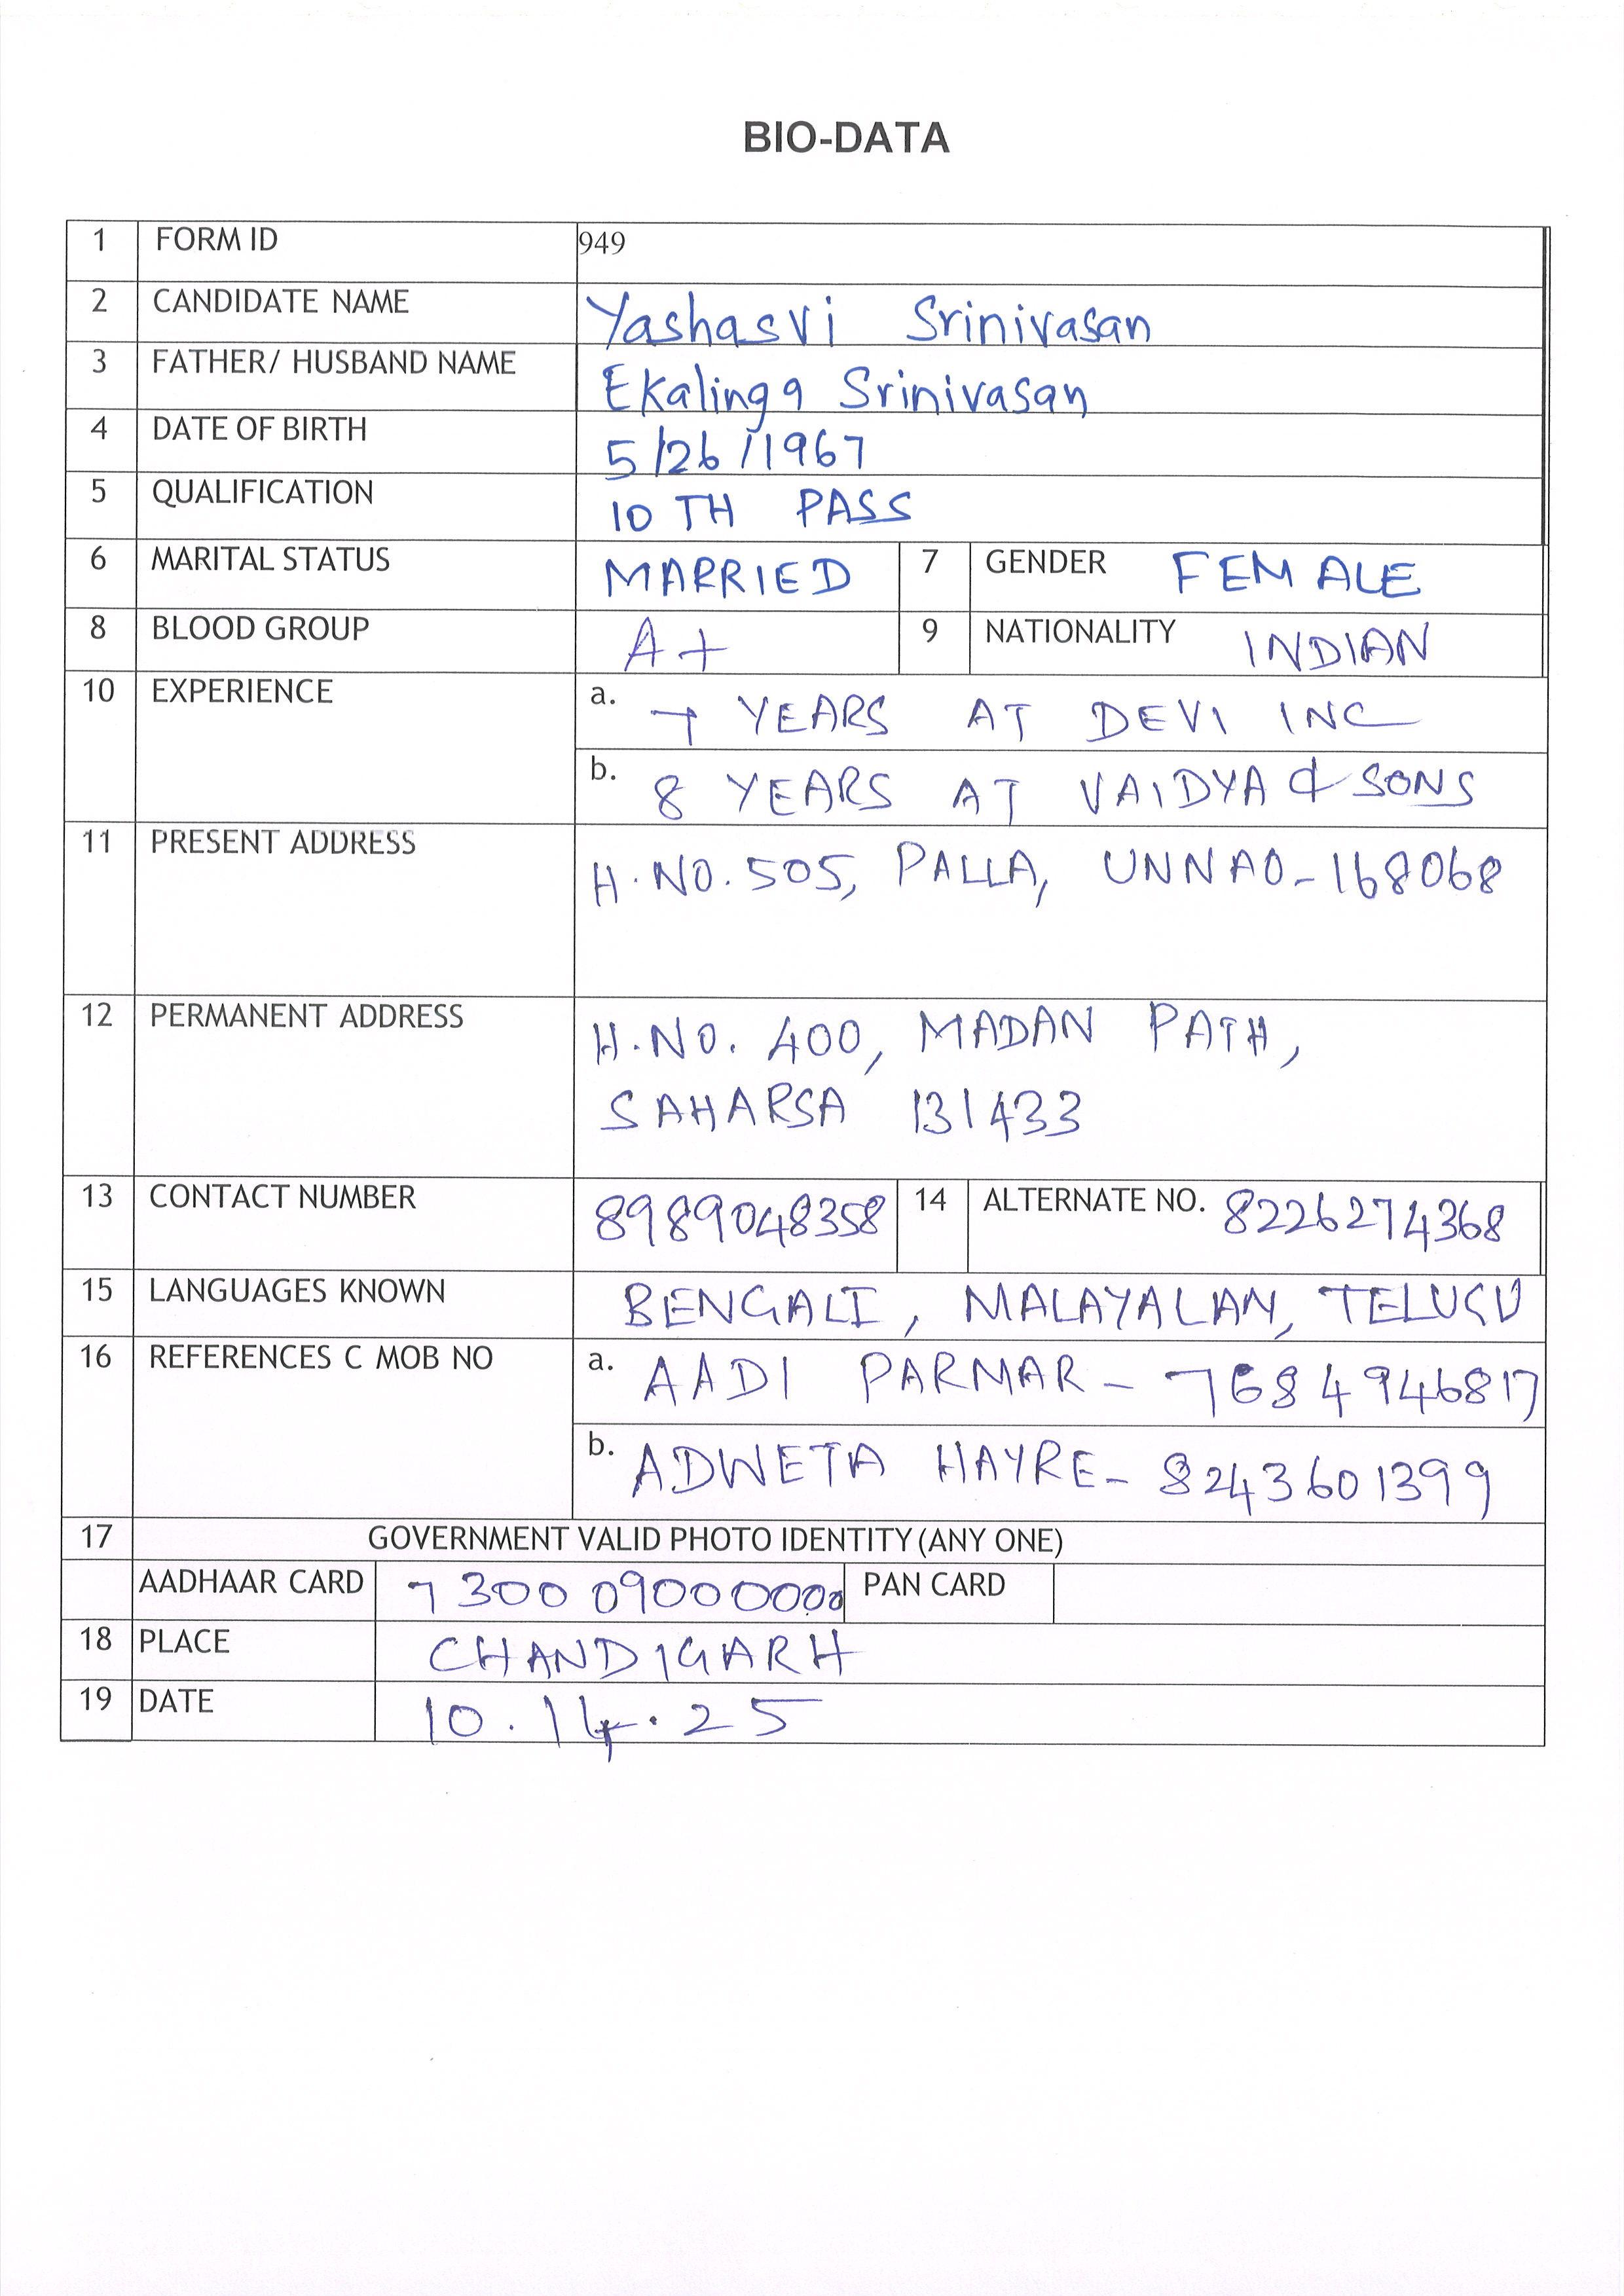 BIO-DATA
1 FORM ID 949
2 CANDIDATE NAME Yashasvi Srinivasan
3 FATHER/ HUSBAND NAME Ekalinga Srinivasan
4 DATE OF BIRTH 5/26/1967
5 QUALIFICATION 10 TH PASS
6 MARITAL STATUS MARRIED 7 GENDER FEMALE
8 BLOOD GROUP A+ 9 NATIONALITY INDIAN
10 EXPERIENCE a. 7 YEARS AT DEVI INC
b. 8 YEARS AT VAIDYA & SONS
11 PRESENT ADDRESS H.NO.505, PALLA, UNNAO-168068
12 PERMANENT ADDRESS H.NO. 400, MADAN PATH,
SAHARSA 131433
13 CONTACT NUMBER 8989048358 14 ALTERNATE NO. 8226274368
15 LANGUAGES KNOWN BENGALI, MALAYALAN, TELUGU
16 REFERENCES C MOB NO a. AADI PARMAR - 7684946817
b. ADWETA HAYRE- 8243601399
17 GOVERNMENT VALID PHOTO IDENTITY (ANY ONE)
AADHAAR CARD 730009000000 PAN CARD
18 PLACE CHANDIGARH
19 DATE 10.14.25